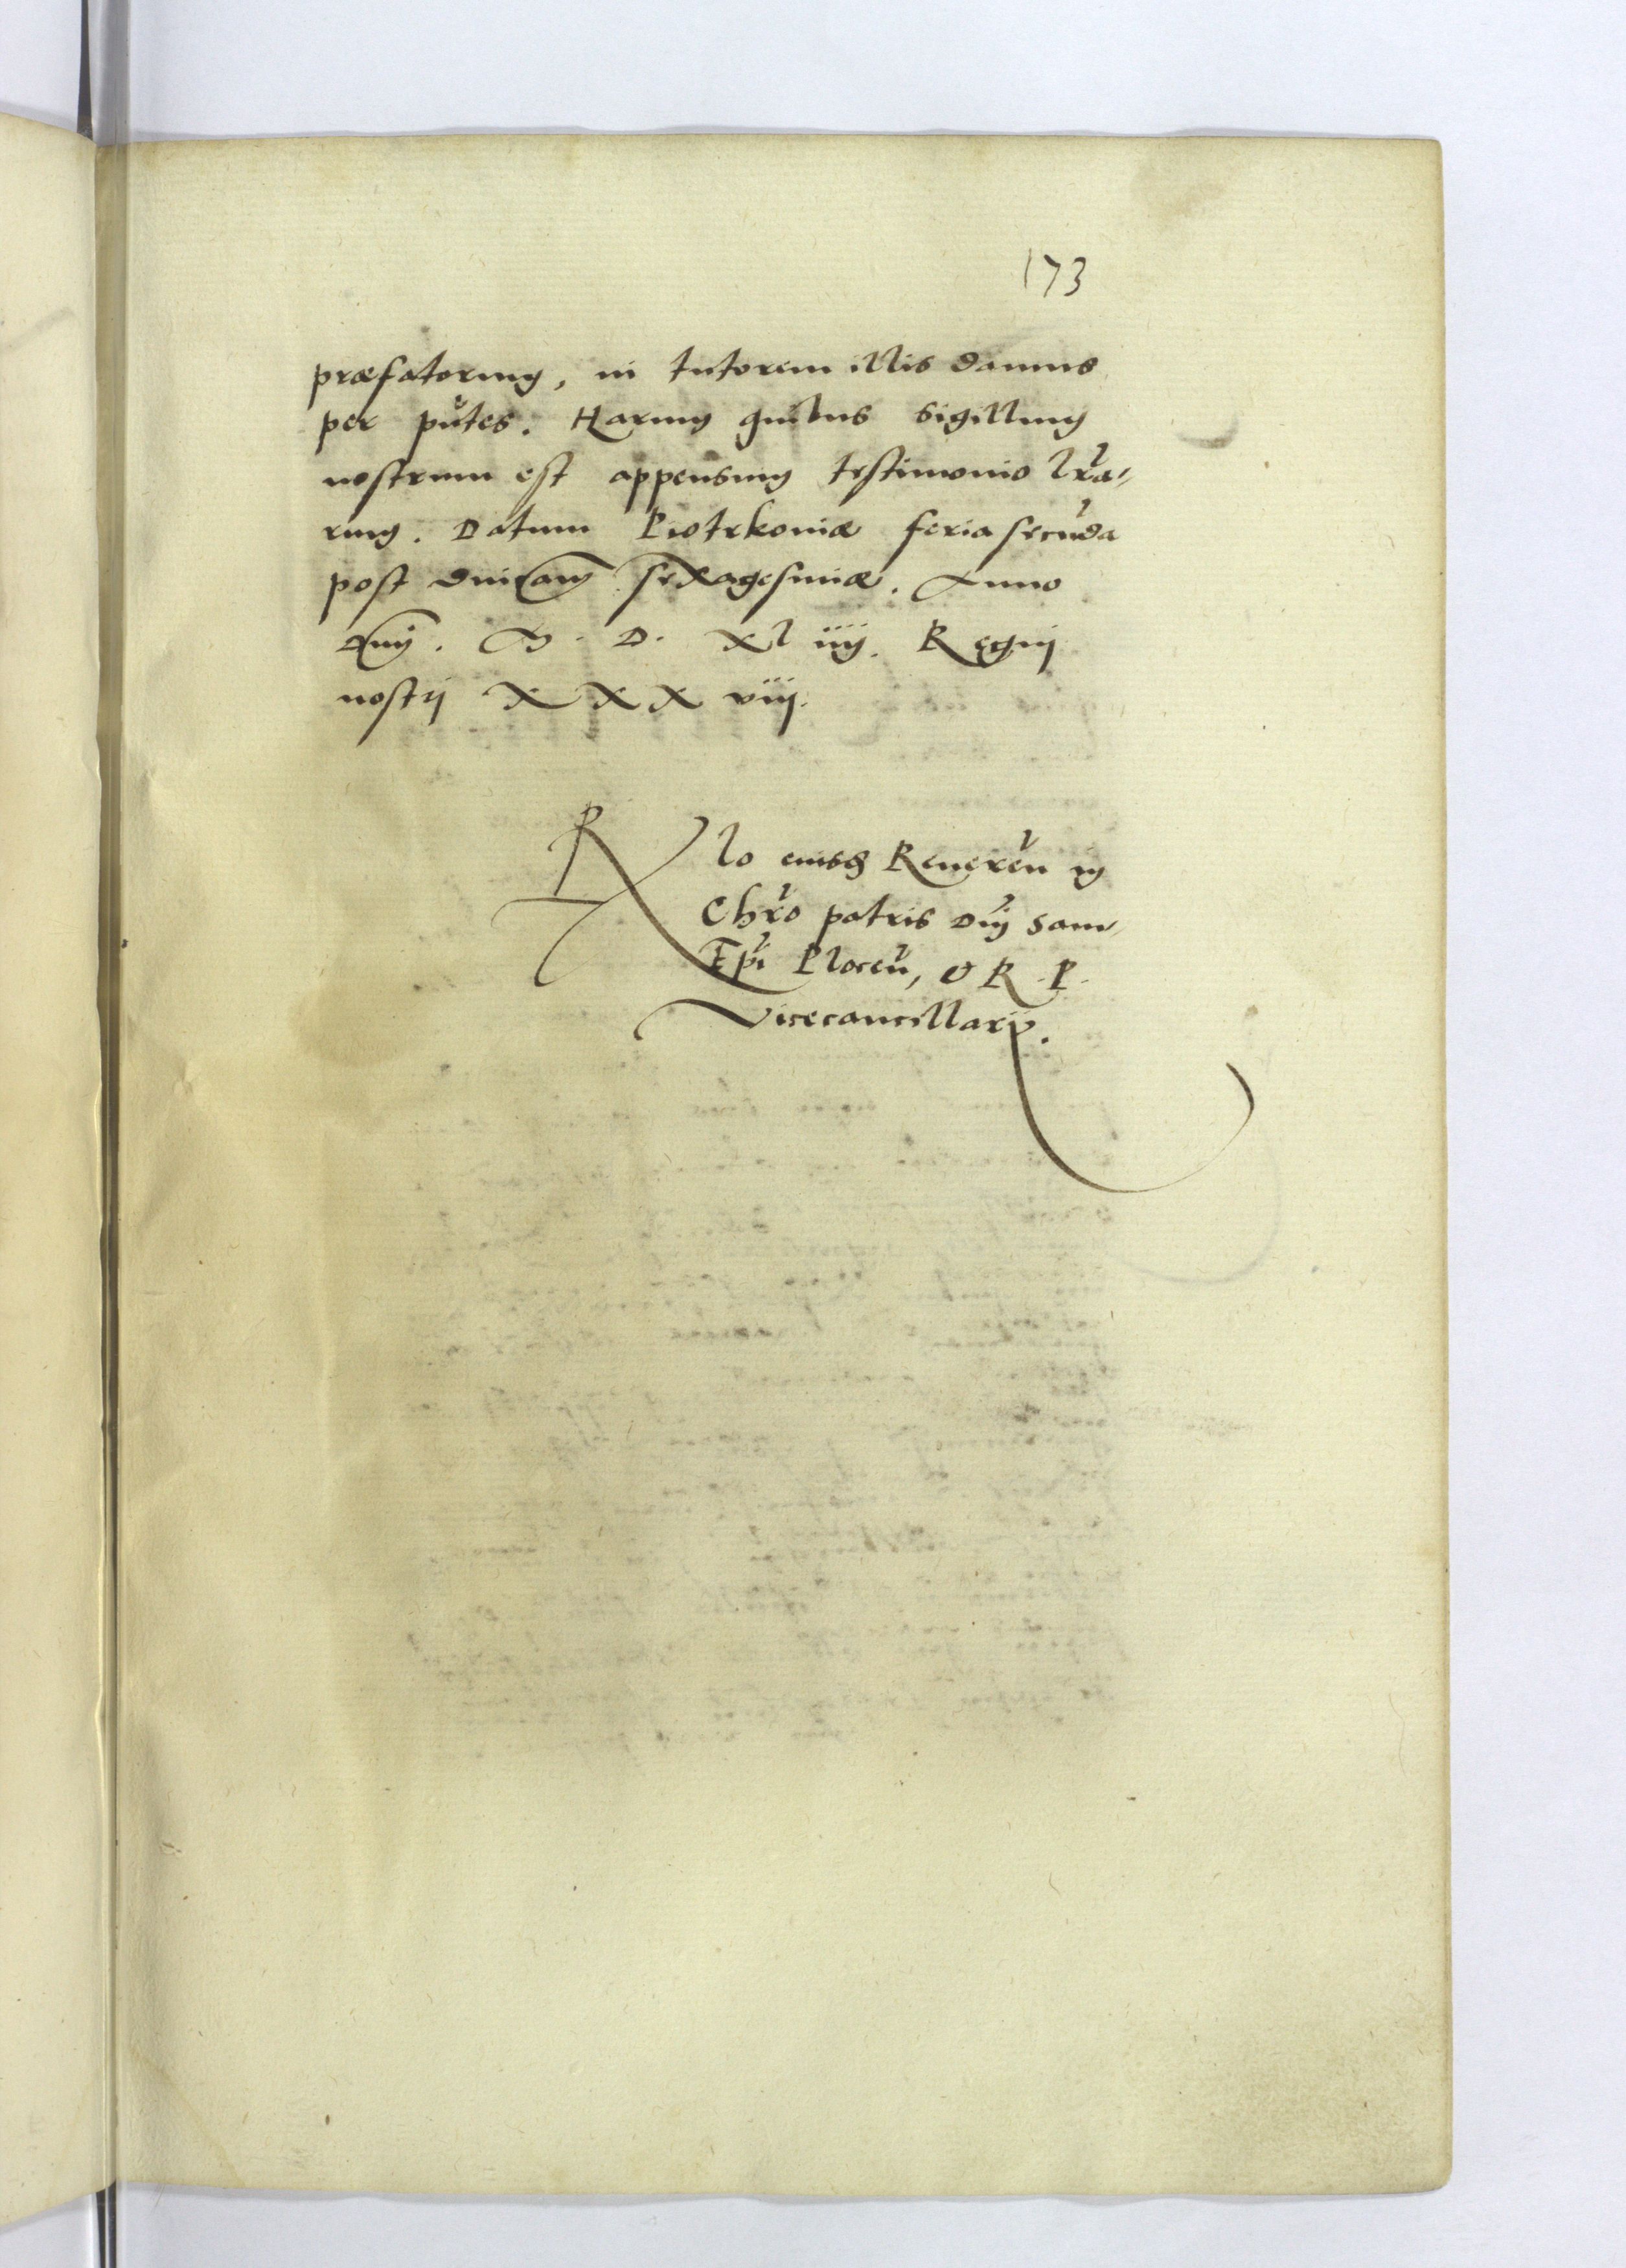 173
præfatorum, in tutorem illis damus
per pñtes. Harum quibus sigillum
nostrum est appensum testimonio lr̃a-
rum. Datum Piotrkoviæ feria secũda
post dnicam sexagesimæ. Anno
dnj. M. D. xl iiij. Regnj
nostrj X X X viij.
Rlo eiusd Reveren̄ in
Chr̃o patris Dñj Sam,
Epĩ Plocen̄, & R. P.
Vicecancellarij.